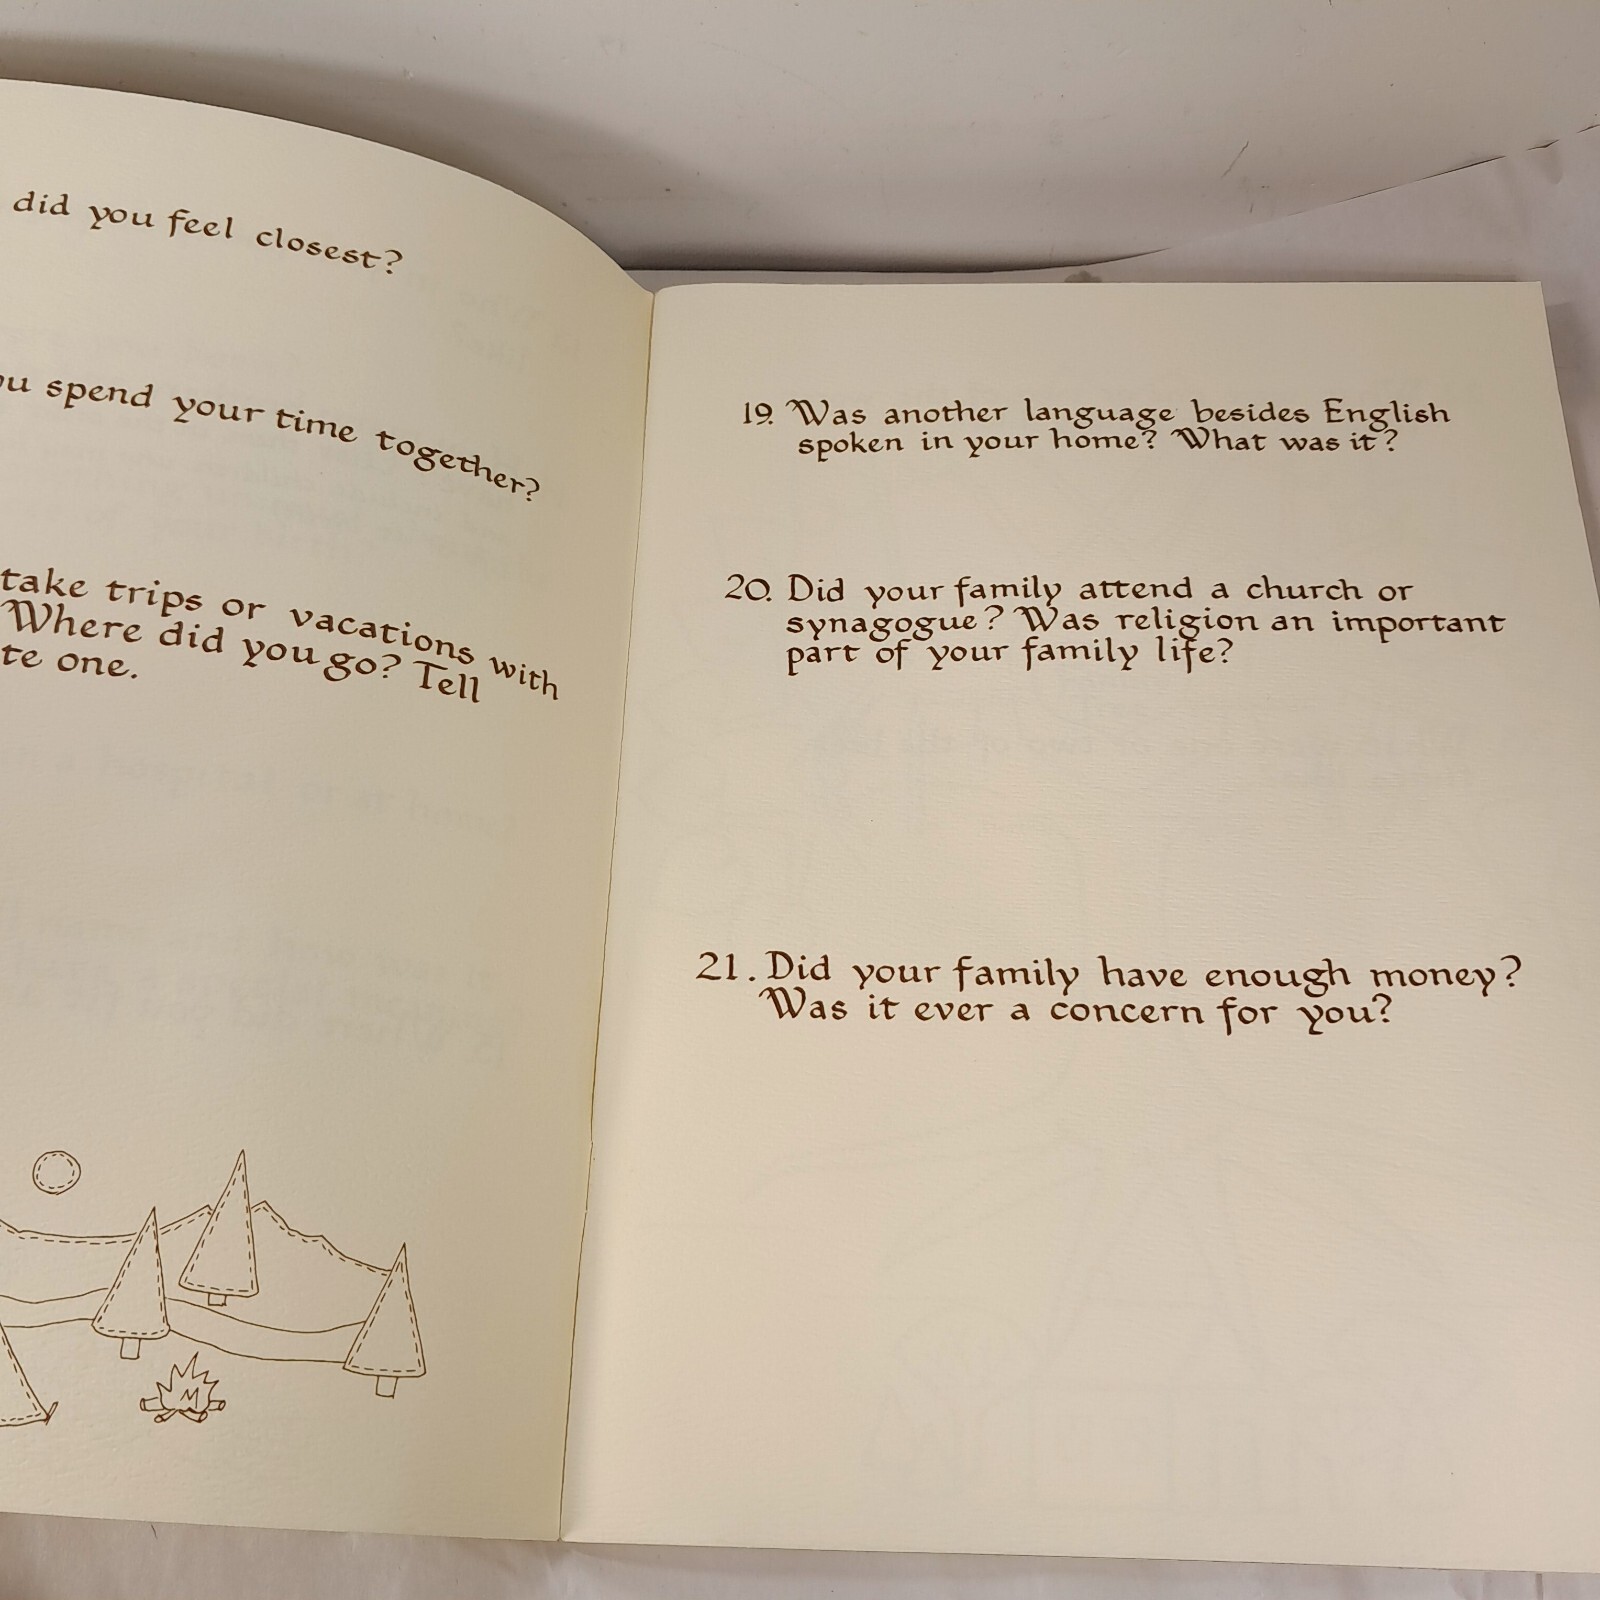 did you feel closest?
spend your time together?
take trips or vacations with
Where did you go? Tell
one.
19. Was another language besides English
spoken in your home? What was it?
20. Did your family attend a church or
synagogue? Was religion an important
part of your family life?
21. Did your family have enough money?
Was it ever a concern for you?